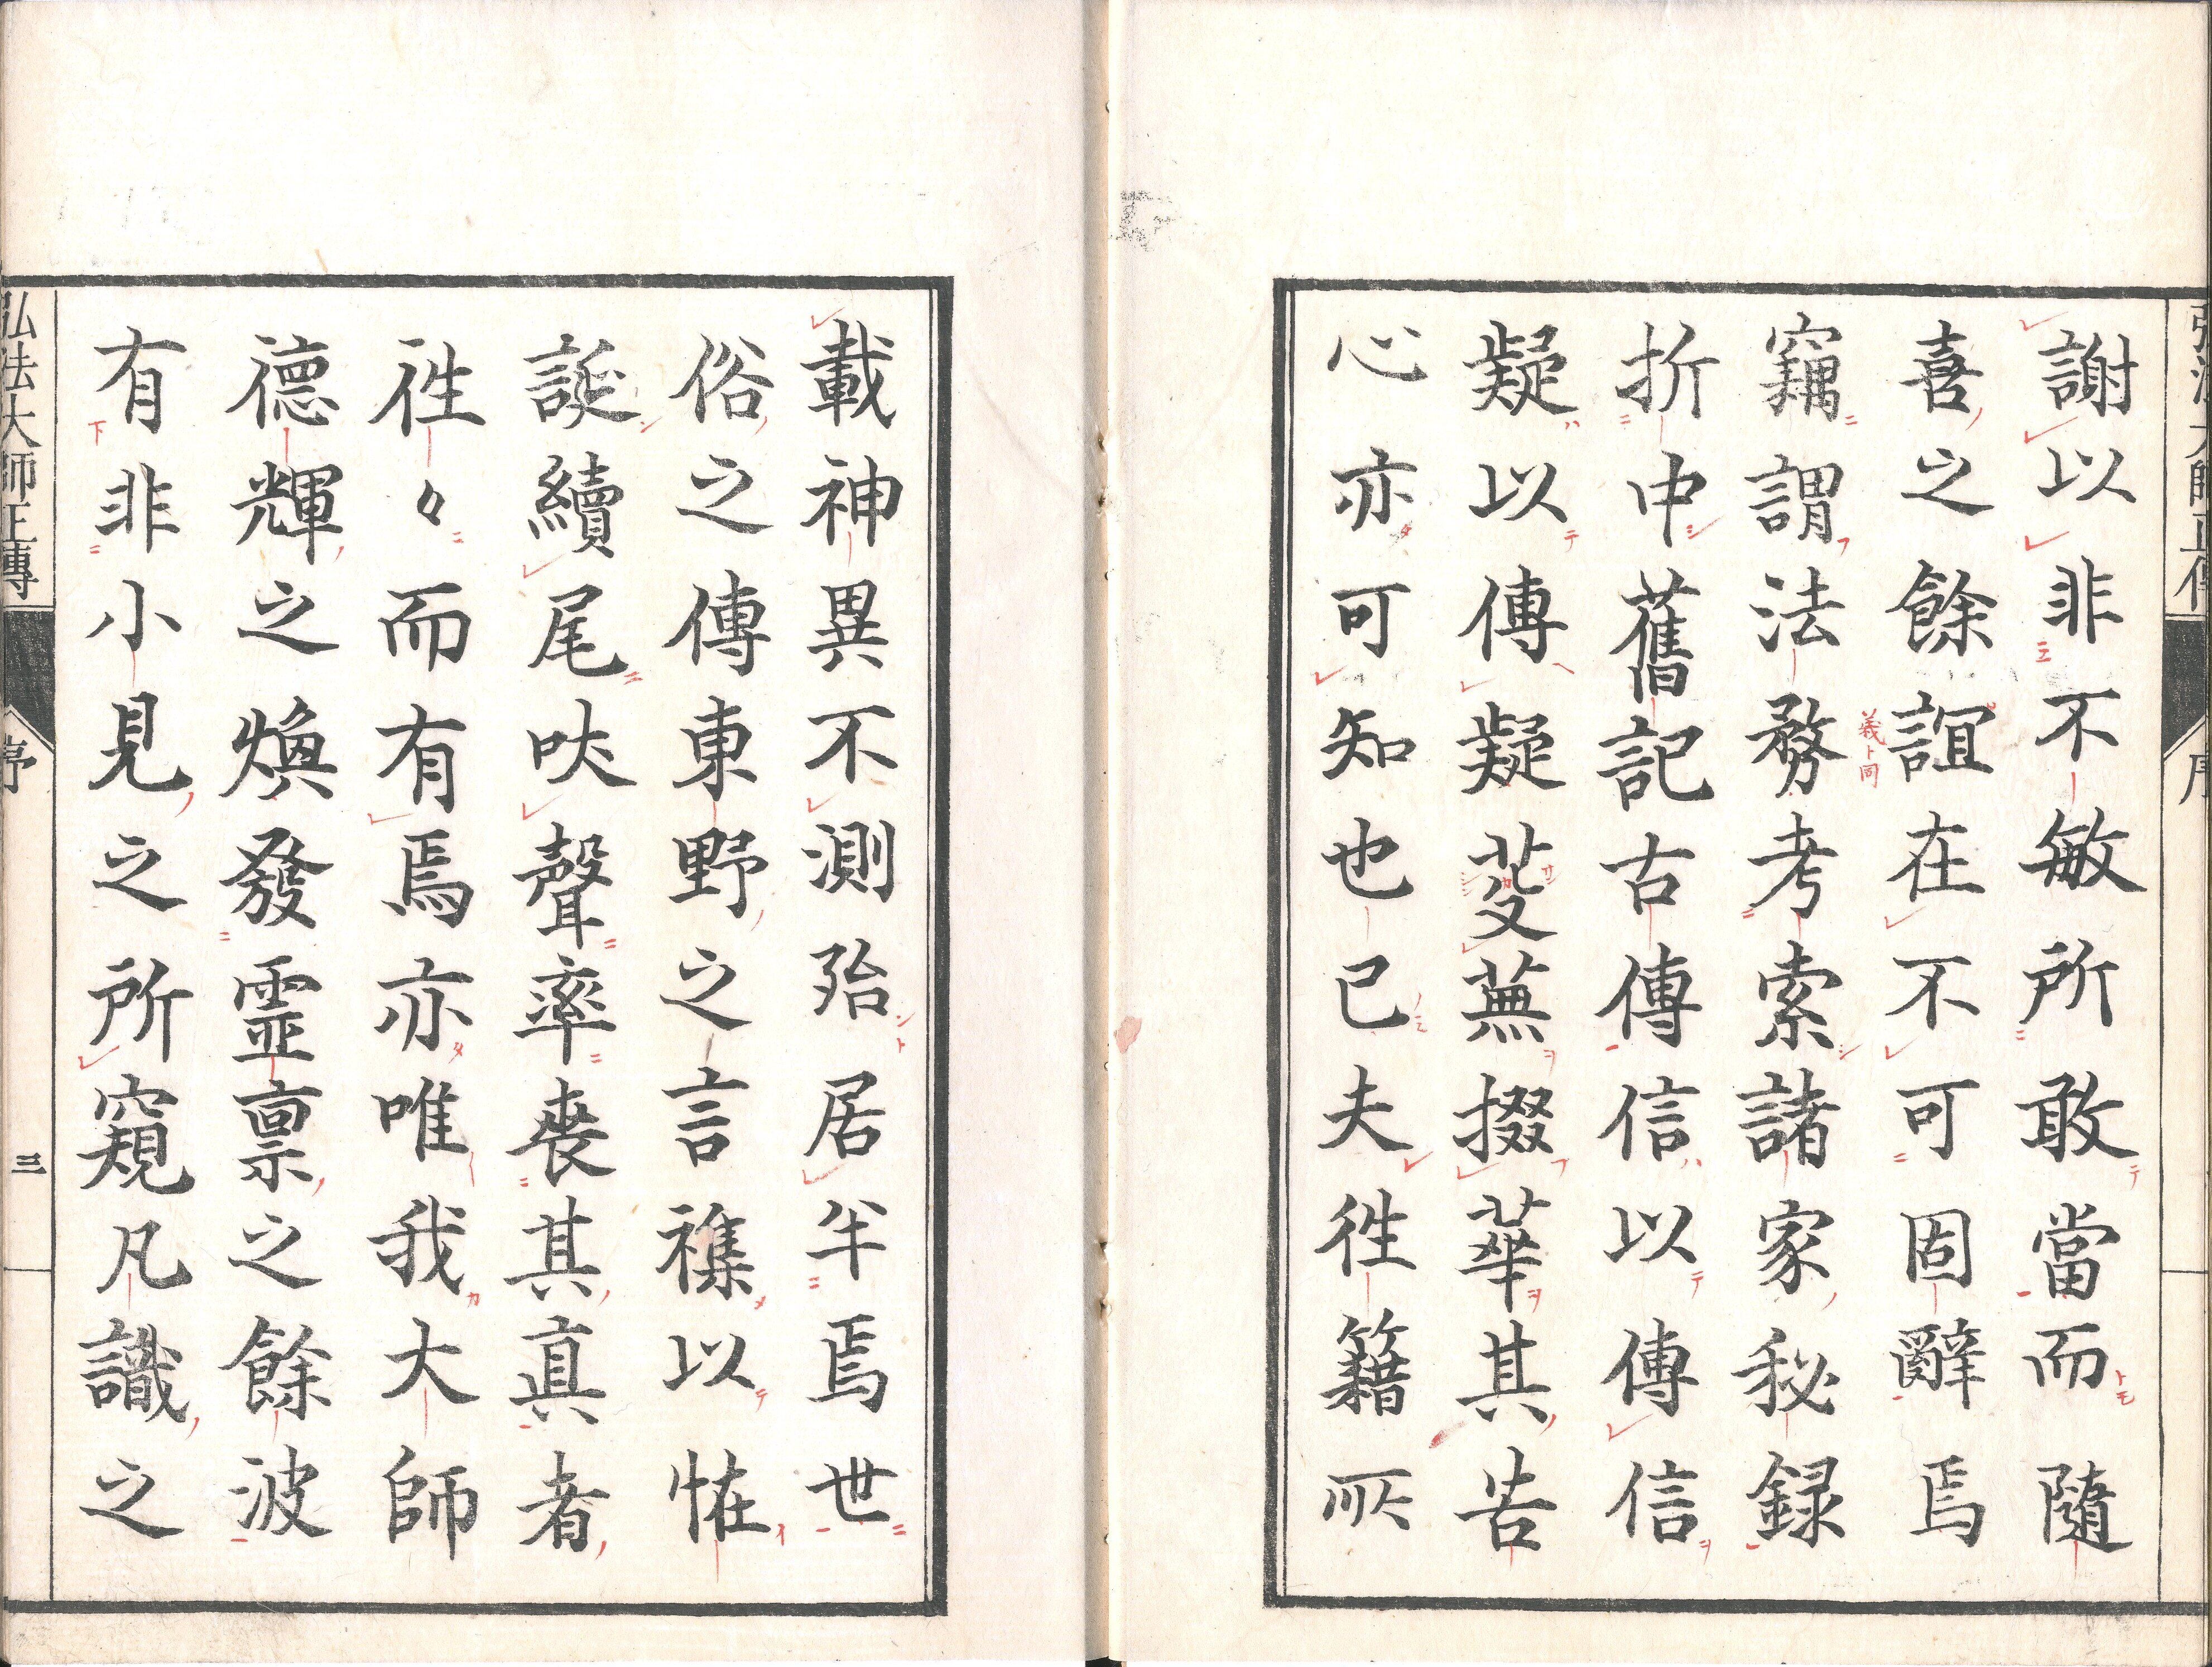 弘法大師正傳
序
謝以非不敏所敢當而隨
喜之餘誼在不可固辭焉
義ト同
竊謂法務考索諸家秘録
折中舊記古傳信以傳信
疑以傳疑芟蕪掇華其苦
心亦可知也已夫徃籍所
載神異不測殆居半焉世
俗之傳東野之言襍以恠
誕續尾吠聲率喪其真者
徃々而有焉亦唯我大師
德輝之煥發霊禀之餘波
有非小見之所窺凡識之
弘法大師正傳
序
三